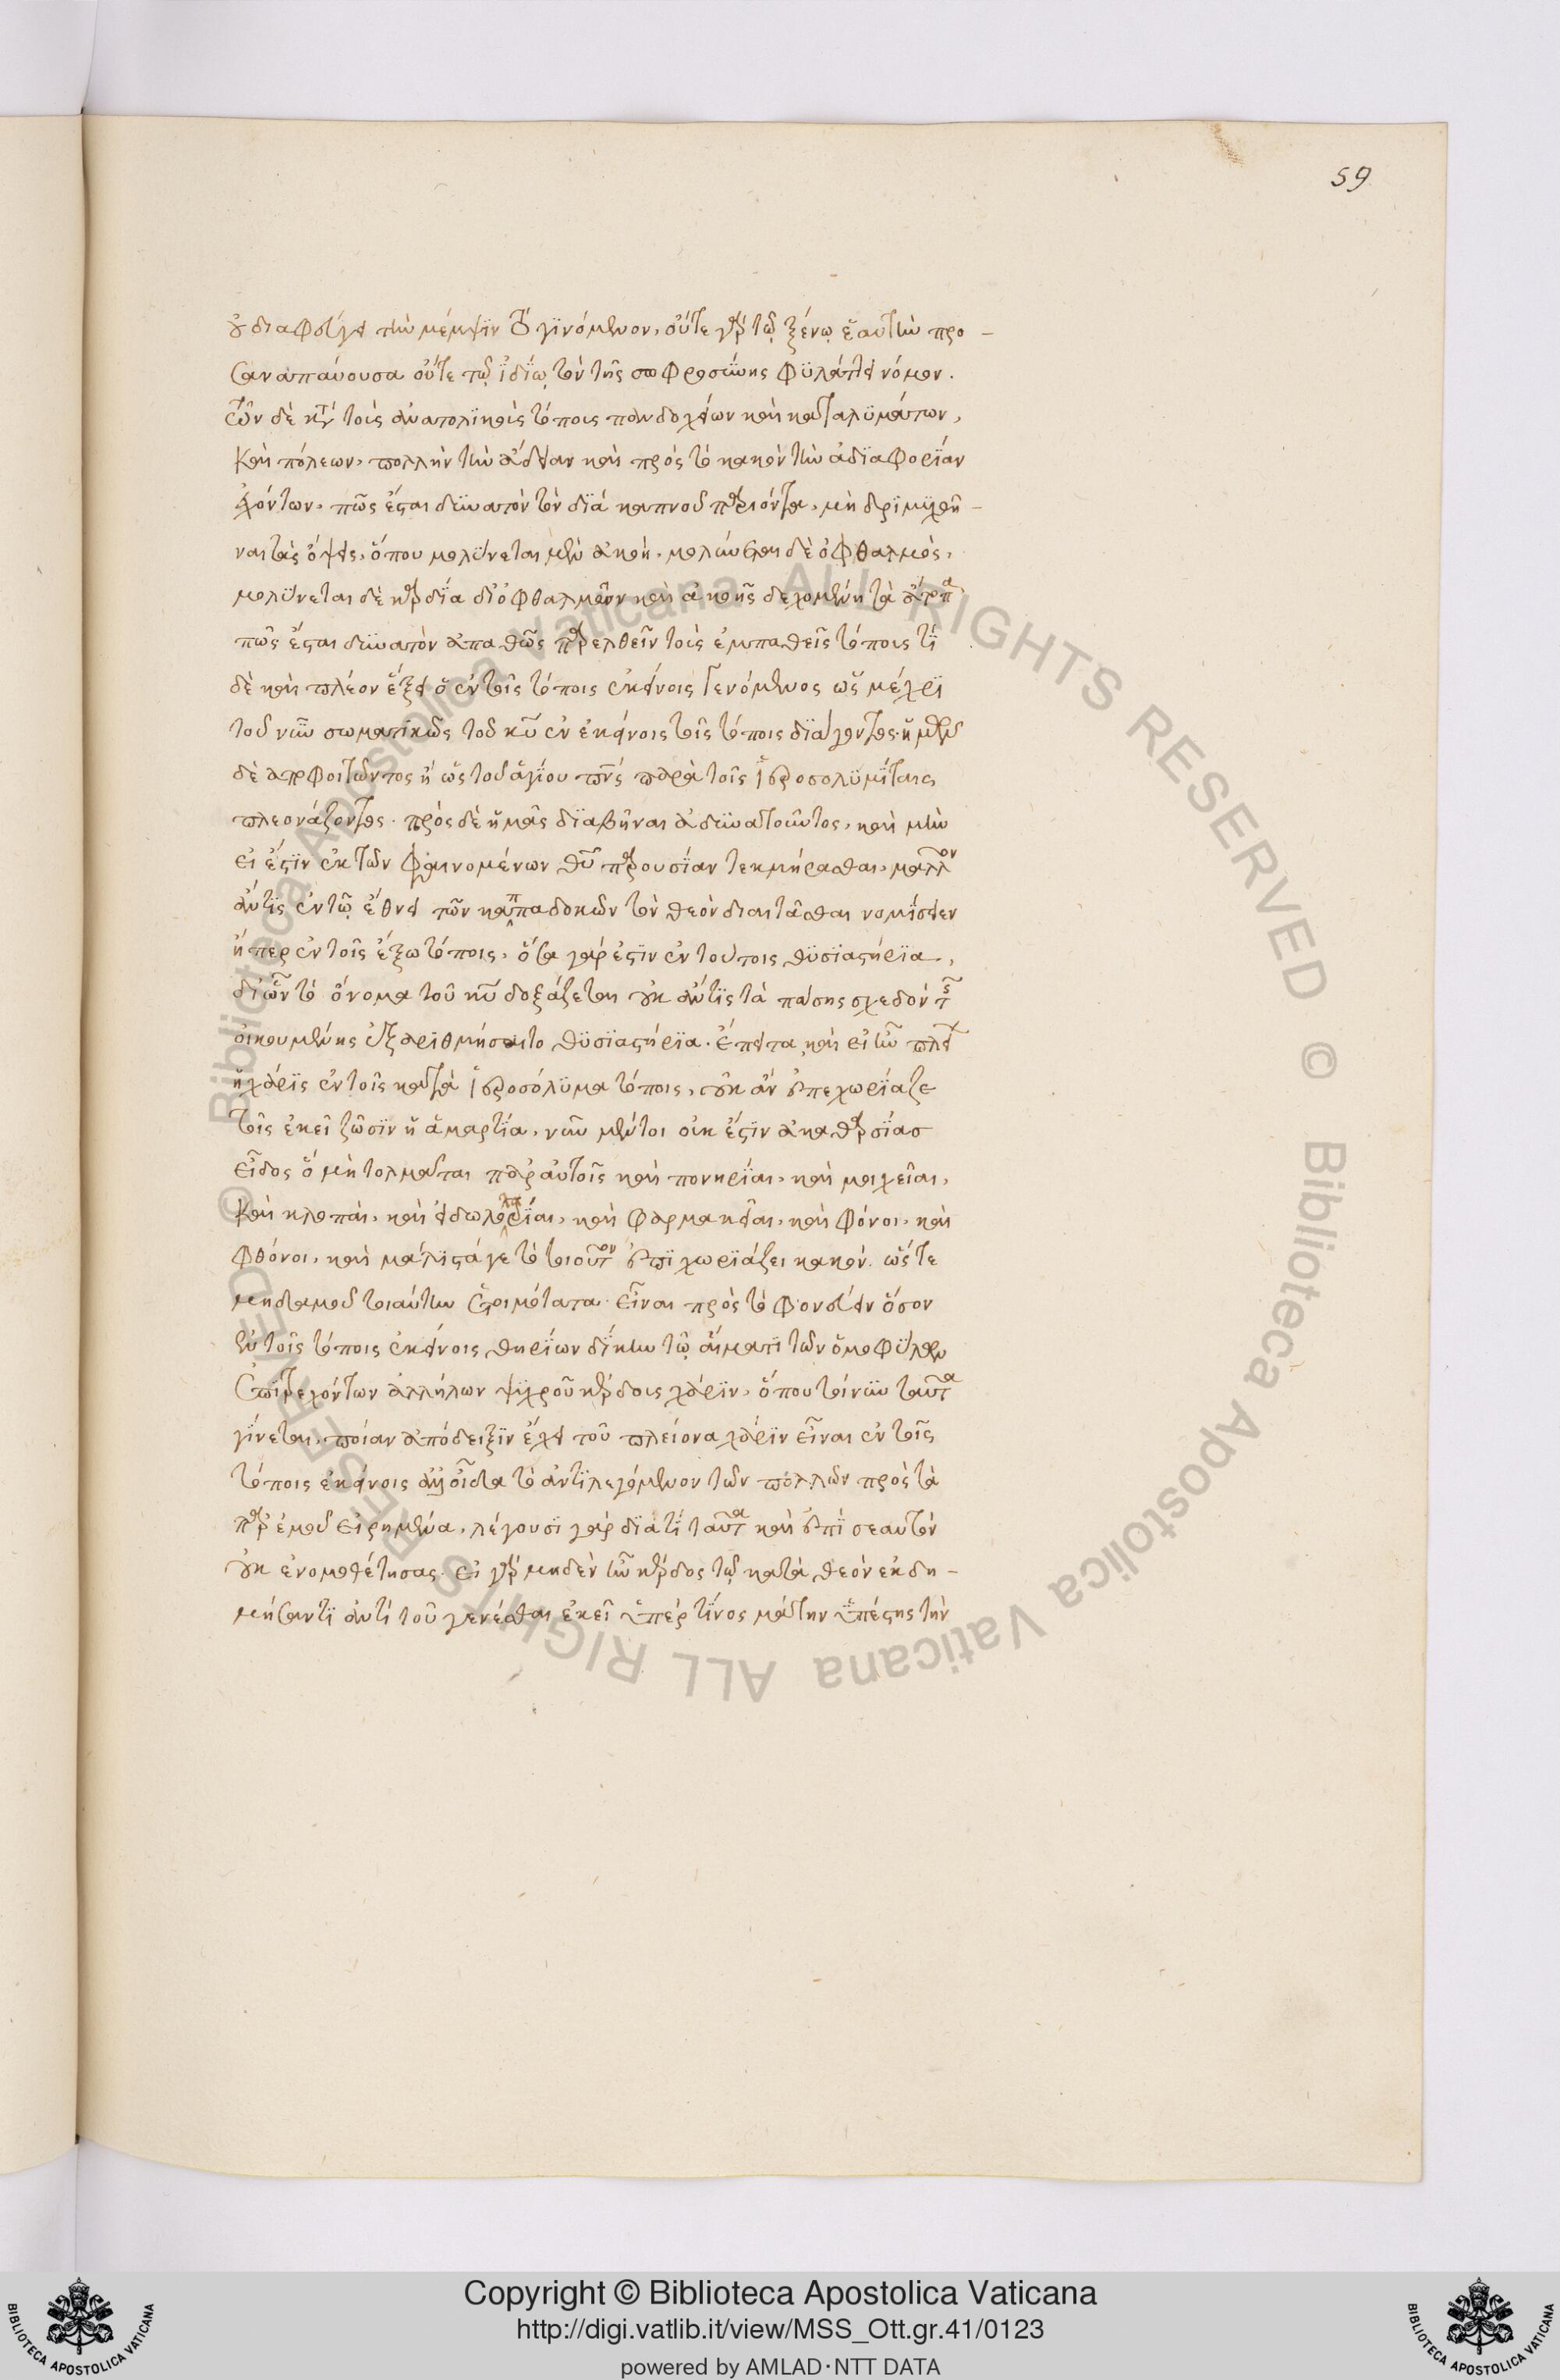 59
οὐ διαφεύγει τὴν μέμψϊν τὸ γϊνόμενον, οὔτε γὰρ τῷ ξένῳ ἑαυτὴν προ-
σαναπαύουσα οὔτε τῷ ἰδίῳ τὸν τῆς σωφροσύνης φϋλάττει νόμον.
τῶν δὲ κατὰ τοὺς ἀνατολϊκοὺς τόποις πανδοχείων καὶ καταλϋμάτων,
καὶ πόλεων, πολλὴν τὴν ἄδειαν καὶ πρὸς τὸ κακὸν τὴν ἀδϊαφορΐαν
ἐχόντων, πῶς ἔσται δϋνατὸν τὸν δϊὰ καπνοῦ παριόντα, μὴ δρϊμυχθῆ-
ναι τὰς ὄψεις, ὅπου μολϋνεται μὲν ἀκοὴ, μολύνεται δὲ ὀφθαλμὸς,
μολϋνεται δὲ καρδΐα δι' ὀφθαλμῶν καὶ ἀκοῆς δεχομένη τὰ ἄτοπα
πῶς ἔσται δϋνατὸν ἀπαθῶς παρελθεῖν τοὺς ἐμπαθεῖς τόποις τΐ
δὲ καὶ πλέον ἕξει ὁ ἐν τοῖς τόποις ἐκείνοις γενόμενος ὡς μέχρϊ
τοῦ νῦν σωματϊκῶς τοῦ κυ ἐν ἐκείνοις τοῖς τόποις δϊάγοντος. ἡμῶν
δὲ ἀποφοιτῶντος ἢ ὡς τοῦ ἁγΐου πνς παρὰ τοῖς ἱεροσολϋμΐταις
πλεονάζοντος. πρὸς δὲ ἡμᾶς δϊαβῆναι ἀδϋνατοῦντος, καὶ μὴν
εἰ ἔστϊν ἐκ τῶν φαινομένων θυ παρουσΐαν τεκμήρασθαι, μᾶλλον
ἄν τϊς ἐν τῷ ἔθνει τῶν καππαδοκῶν τὸν θεὸν διαιτᾶσθαι νομΐσειεν
ἤπερ ἐν τοῖς ἔξω τόποις, ὅσα γάρ ἐστϊν ἐν τούτοις θϋσϊαστήρϊα,
δι' ὧν τὸ ὄνομα τοῦ κυ δοξάζεται οὐκ ἄν τϊς τὰ πάσης σχεδόν τῆς
οἰκουμένης ἐξαρϊθμήσαιτο θϋσϊαστήρϊα. ἔπειτα καὶ εἰ ἦν πλεί
ἡ χάρϊς ἐν τοῖς κατὰ ἱεροσόλϋμα τόποις, οὐκ ἂν ἐπεχωρΐαζε
τοῖς ἐκεῖ ζῶσϊν ἡ ἁμαρτΐα, νῦν μέντοι οὐκ ἔστϊν ἀκαθαρσΐασ
εἶδος ὃ μὴ τολμᾶται παρ' αὐτοῖς καὶ πονηρΐαι, καὶ μοιχεῖαι,
καὶ κλοπαὶ, καὶ εἰδωλολατρΐαι, καὶ φαρμακεῖαι, καὶ φόνοι, καὶ
φθόνοι, καὶ μάλϊστά γε τὸ τοιοῦτον ἐπϊχωρϊάζει κακόν. ὥστε
μηδαμοῦ τοιαύτην ἑτοιμότατα εἶναι πρὸς τὸ φονεύειν ὅσον
ἐν τοῖς τόποις ἐκείνοις θηρΐων δΐκην τῷ αἵματϊ τῶν ὁμοφϋλων
ἐπϊτρεχόντων ἀλλήλων ψϋχροῦ κέρδους χάρϊν, ὅπου τοίνϋν ταῦτα
γΐνεται, ποίαν ἀπόδειξϊν ἔχει τοῦ πλείονα χάρϊν εἶναι ἐν τοῖς
τόποις ἐκείνοις ἀλλ' οἶδα τὸ ἀντϊλεγόμενον τῶν πολλῶν πρὸς τὰ
παρ' ἐμοῦ εἰρημένα, λέγουσϊ γάρ δϊατΐ ταῦτα καὶ ἐπϊ σεαυτὸν
οὐκ ἐνομοθέτησας. εἰ γὰρ μηδὲν ἦν κέρδος τῷ κατὰ θεὸν ἐκδη-
μήσαντϊ ἀντὶ τοῦ γενέσθαι ἐκεῖ ὑπέρ τΐνος μάτην ὑπέστης τὴν
Copyright © Biblioteca Apostolica Vaticana
http://digi.vatlib.it/view/MSS_Ott.gr.41/0123
powered by AMLAD·NTT DATA
BIBLIOTECA APOSTOLICA VATICANA
BIBLIOTECA APOSTOLICA VATICANA
© Biblioteca Apostolica Vaticana ALL RIGHTS RESERVED © Biblioteca Apostolica Vaticana ALL RIGHTS RESERVED